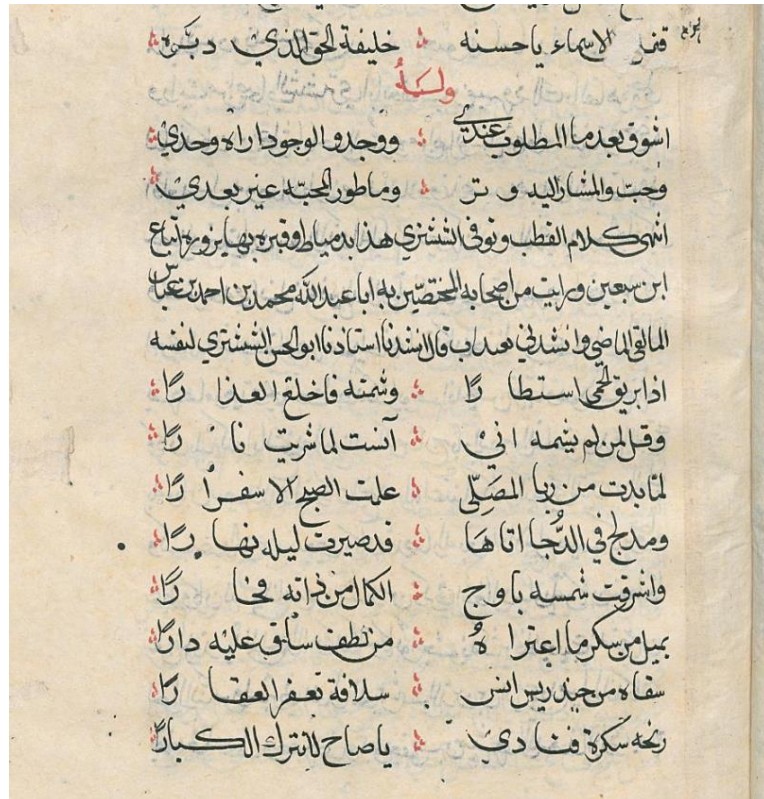 الاسماء يا حسنه ؞ خليفة الحق الذي
وله
اشوق بعد ما المطلوب عندي ؞ ووجد والوجود اراه وحدي
وحب والمشار اليه وتر ؞ وما طور المحبه غير بعدي
انتهى كلام القطب وتوفى الششتري هذا بدمياط وقبره بها يزوره اتباع
ابن سبعين ورايت من اصحابه المختصين به ابا عبد الله محمد بن احمد بن عباس
المالقي الماضي وانشدني قال انشدنا استاذنا ابو الحسن الششتري لنفسه
اذا بريق الحمى استطارا ؞ وشمته فاخلع العذارا
وقل لمن لم يشمه اني ؞ آنست لما شريت نارا
لما بدت من ربا المصلى ؞ علمت الصبح الاسفرارا
ومدلج في الدجا اتاها ؞ قد صيرت ليله نهارا
واشرقت شمسه باوج ؞ الكمال من ذاته فخارا
يميل من سكر ما اعتراه ؞ من لطف ساق عليه دارا
سقاه من خندريس انس ؞ سلافة تعقر العقارا
رنحه سكرة فنادي ؞ يا صاح لا تترك الكبارا